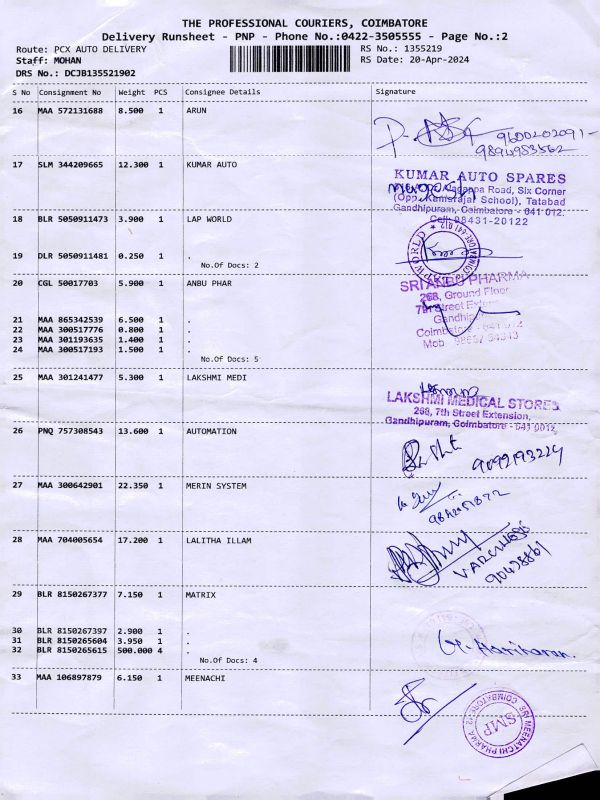 THE PROFESSIONAL COURIERS, COIMBATORE
Delivery Runsheet - PNP - Phone No.:0422-3505555 - Page No.:2
Route: PCX AUTO DELIVERY RS No.: 1355219
Staff: MOHAN RS Date: 20-Apr-2024
DRS No.: DCJB135521902
S No Consignment No Weight PCS Consignee Details Signature
16 MAA 572131688 8.500 1 ARUN
9600202091-
9894983562
17 SLM 344209665 12.300 1 KUMAR AUTO
KUMAR AUTO SPARES
Road, Six Corner
(Opp. School), Tatabad
Gandhipuram, Coimbatore - 641 012.
Cell: 98431-20122
18 BLR 5050911473 3.900 1 LAP WORLD
19 DLR 5050911481 0.250 1 .
No.Of Docs: 2
20 CGL 50017703 5.900 1 ANBU PHAR
SRI ANBU PHARMA
268, Ground Floor
7th Street
21 MAA 865342539 6.500 1 .
22 MAA 300517776 0.800 1 .
23 MAA 301193635 1.400 1 .
24 MAA 300517193 1.500 1 .
No.Of Docs: 5
25 MAA 301241477 5.300 1 LAKSHMI MEDI
LAKSHMI MEDICAL STORES
268, 7th Street Extension,
Gandhipuram, Coimbatore - 641 0012.
26 PNQ 757308543 13.600 1 AUTOMATION
27 MAA 300642901 22.350 1 MERIN SYSTEM
28 MAA 704005654 17.200 1 LALITHA ILLAM
29 BLR 8150267377 7.150 1 MATRIX
30 BLR 8150267397 2.900 1 .
31 BLR 8150265604 3.950 1 .
32 BLR 8150265615 500.000 4 .
Hariharan.
No.Of Docs: 4
33 MAA 106897879 6.150 1 MEENACHI
SRI MEENATCHI PHARMA
COIMBATORE-12
SMP